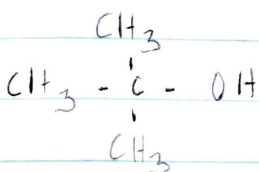 CH3
CH3 - C - OH
CH3